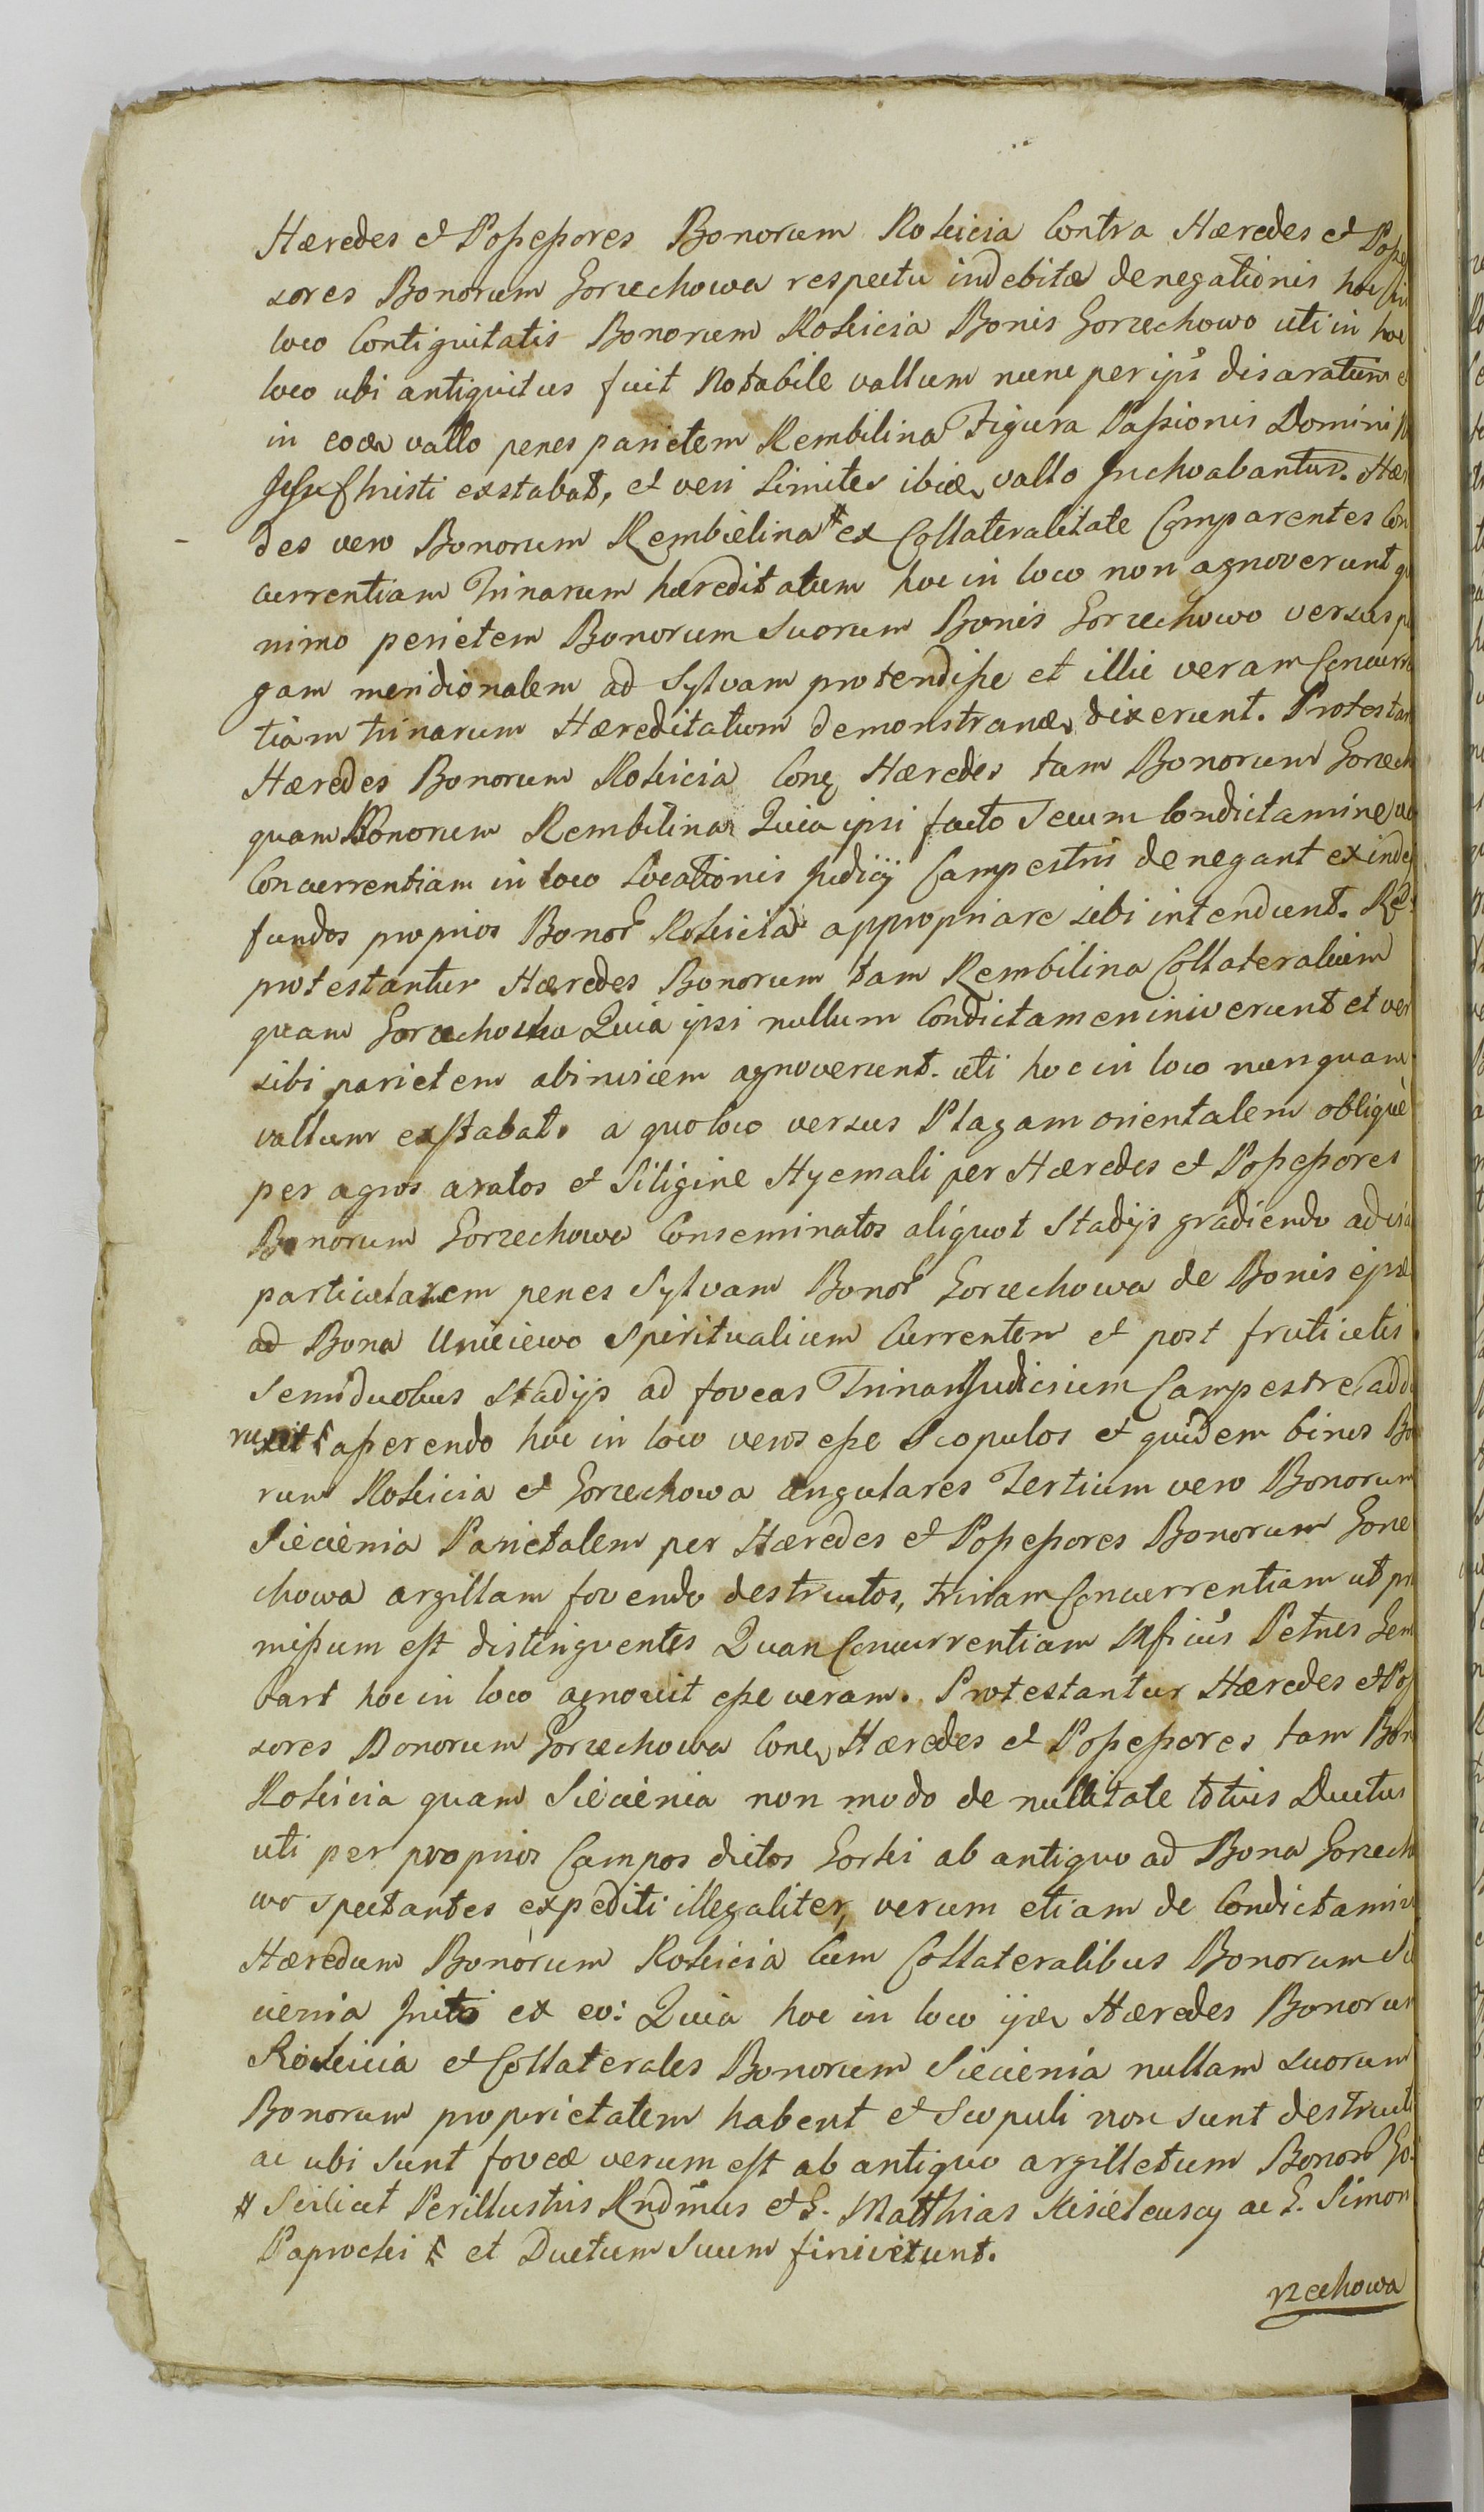 Hæredes et Possessores Bonorum Rościcia Contra Hæredes et Posse
sores Bonorum Gorzechowa respectu indebitæ denegationis hoc in
loco Contiguitatis Bonorum Rościcia Bonis Gorzechowo uti in hoc
loco ubi antiquitus fuit Notabile vallum nunc per ips̃ disaratum e
in eodẽ vallo penes parietem Rembilina Figura Passionis Domini N
Jesu Christi exstabat, et veri Limites ibidẽ vallo Inchoabantur. Hær
des vero Bonorum Rembielina # ex Collateralitate Comparentes Con
currentiam Trinarum hæreditatum hoc in loco non agnoverunt q
nimo perietem Bonorum Suorum Bonis Gorzechowo versus pl
gam meridionalem ad Sylvam protendisse et illic veram Concurre
tiam trinarum Hæreditatum demonstrandã dixerunt. Protestan
Hæredes Bonorum Rościcia Conq Hæredes tam Bonorum Gorzech
quam Bonorum Rembilina Quia ipsi facto Secum Condictamine ve
Concurrentiam in loco Locationis Judicij Campestris denegant ex inde
fundos proprios Bonor̃ Rościcia appropriare sibi intendunt. Re
protestantur Hæredes Bonorum tam Rembilina Collateralium
quam Gorzechowa Quia ipsi nullum Condictamen iniverunt et ver
sibi parietem abinvicem agnoverunt. uti hoc in loco nunquam
vallum exstabat. a quo loco versus Plagam orientalem obliquè
per agros aratos et Siligine Hyemali per Hæredes et Possessores
Bonorum Gorzechowa Conseminatos aliquot Stadijs gradiendo ad viã
particularem penes Sylvam Bonor̃ Gorzechowa de Bonis ejsdẽ
ad Bona Unieiewo Spiritualium Currentem et post fruticetis
Semiduobus Stadijs ad foveas Trinas Judicium Campestre addu
runt asserendo hoc in loco veros esse Scopulos et quidem binos Bo
rum Rościcia et Gorzechowa angulares Tertium vero Bonorum
Siecienia Parietalem per Hæredes et Possessores Bonorum Gorze
chowa argillam fovendo destructos, trinam Concurrentiam ut pr
missum est distinguentes Quam Concurrentiam Mficus Petrus Gem
bart hoc in loco agnovit esse veram. Protestantur Hæredes et Pos
sores Bonorum Gorzechowa Conq Hæredes et Possessores tam Bon
Rościcia quam Siecienia non modo de nullitate totius Ductus
uti per proprios Campos dictos Gorki ab antiquo ad Bona Gorzech
wo spectantes expediti illegaliter, verum etiam de Condictamine
Hæredum Bonorum Rościcia Cum Collateralibus Bonorum Si
cienia Inito ex eo: Quia hoc in loco ijdẽ Hæredes Bonorum
Rościcia et Collaterales Bonorum Siecienia nullam suorum
Bonorum proprietatem habent et Scopuli non sunt destructi
ac ubi sunt foveæ verum est ab antiquo argilletum Bonor̃ Go
# Scilicet Perillustris Rndm̃us et G. Matthias Kisielewscy ac G. Simon
Paprocki et Ductum Suum finiverunt.
rzechowa